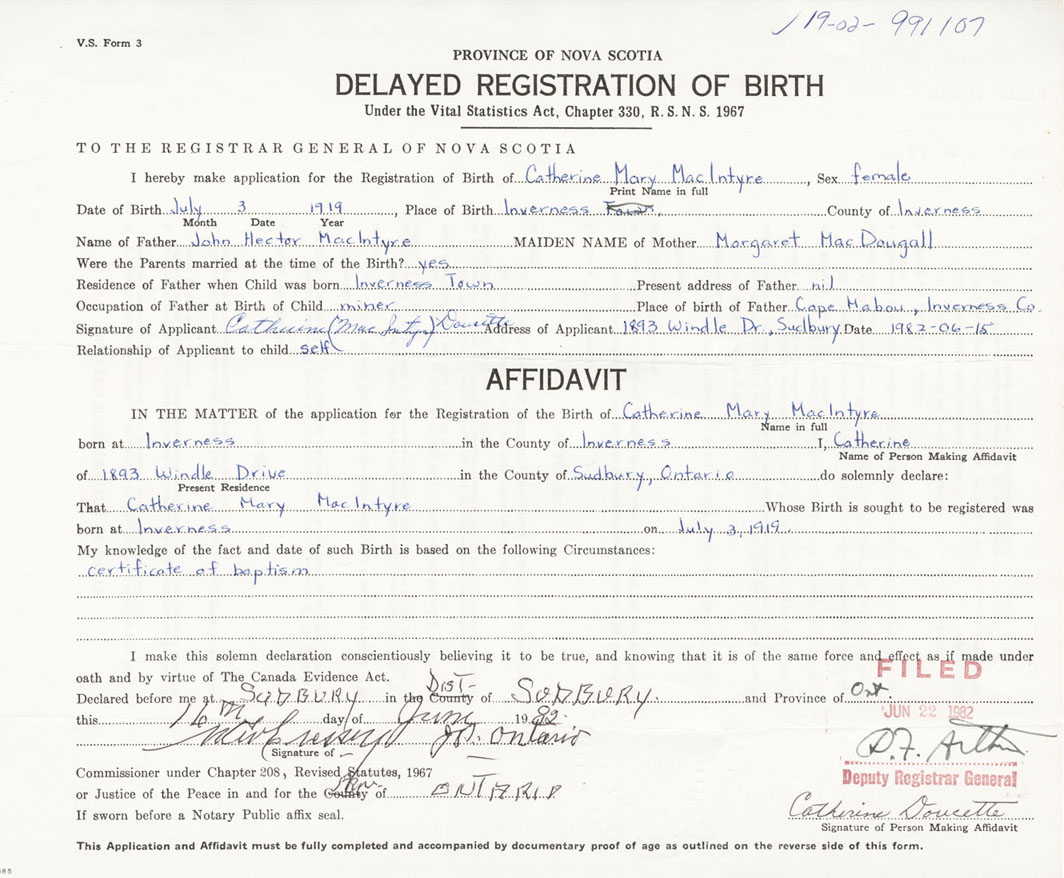 19-02-991107
V.S. Form 3
PROVINCE OF NOVA SCOTIA
DELAYED REGISTRATION OF BIRTH
Under the Vital Statistics Act, Chapter 330, R.S.N.S. 1967
TO THE REGISTRAR GENERAL OF NOVA SCOTIA
I hereby make application for the Registration of Birth of Catherine Mary MacIntyre, Sex female
Print Name in full
Date of Birth July 3 1919, Place of Birth Inverness Town, County of Inverness
Month Date Year
Name of Father John Hector MacIntyre MAIDEN NAME of Mother Margaret MacDougall
Were the Parents married at the time of the Birth? yes
Residence of Father when Child was born Inverness Town Present address of Father nil
Occupation of Father at Birth of Child miner Place of birth of Father Cape Mabou, Inverness Co.
Signature of Applicant Catherine (MacIntyre) Doucette Address of Applicant 1893 Windle Dr., Sudbury Date 1982-06-15
Relationship of Applicant to child self
AFFIDAVIT
IN THE MATTER of the application for the Registration of the Birth of Catherine Mary MacIntyre
Name in full
born at Inverness in the County of Inverness I, Catherine
Name of Person Making Affidavit
of 1893 Windle Drive in the County of Sudbury, Ontario do solemnly declare:
Present Residence
That Catherine Mary MacIntyre Whose Birth is sought to be registered was
born at Inverness on July 3, 1919.
My knowledge of the fact and date of such Birth is based on the following Circumstances:
certificate of baptism
I make this solemn declaration conscientiously believing it to be true, and knowing that it is of the same force and effect as if made under
oath and by virtue of The Canada Evidence Act.
FILED
Declared before me at SUDBURY in the County DIST- of SUDBURY. and Province of Ont.
this 16th day of June 1982.
JUN 22 1982
J.P. Ontario
Signature of
D.F. Arthur
Commissioner under Chapter 208, Revised Statutes, 1967
Deputy Registrar General
or Justice of the Peace in and for the County Prov. of ONTARIO
If sworn before a Notary Public affix seal.
Catherine Doucette
Signature of Person Making Affidavit
This Application and Affidavit must be fully completed and accompanied by documentary proof of age as outlined on the reverse side of this form.